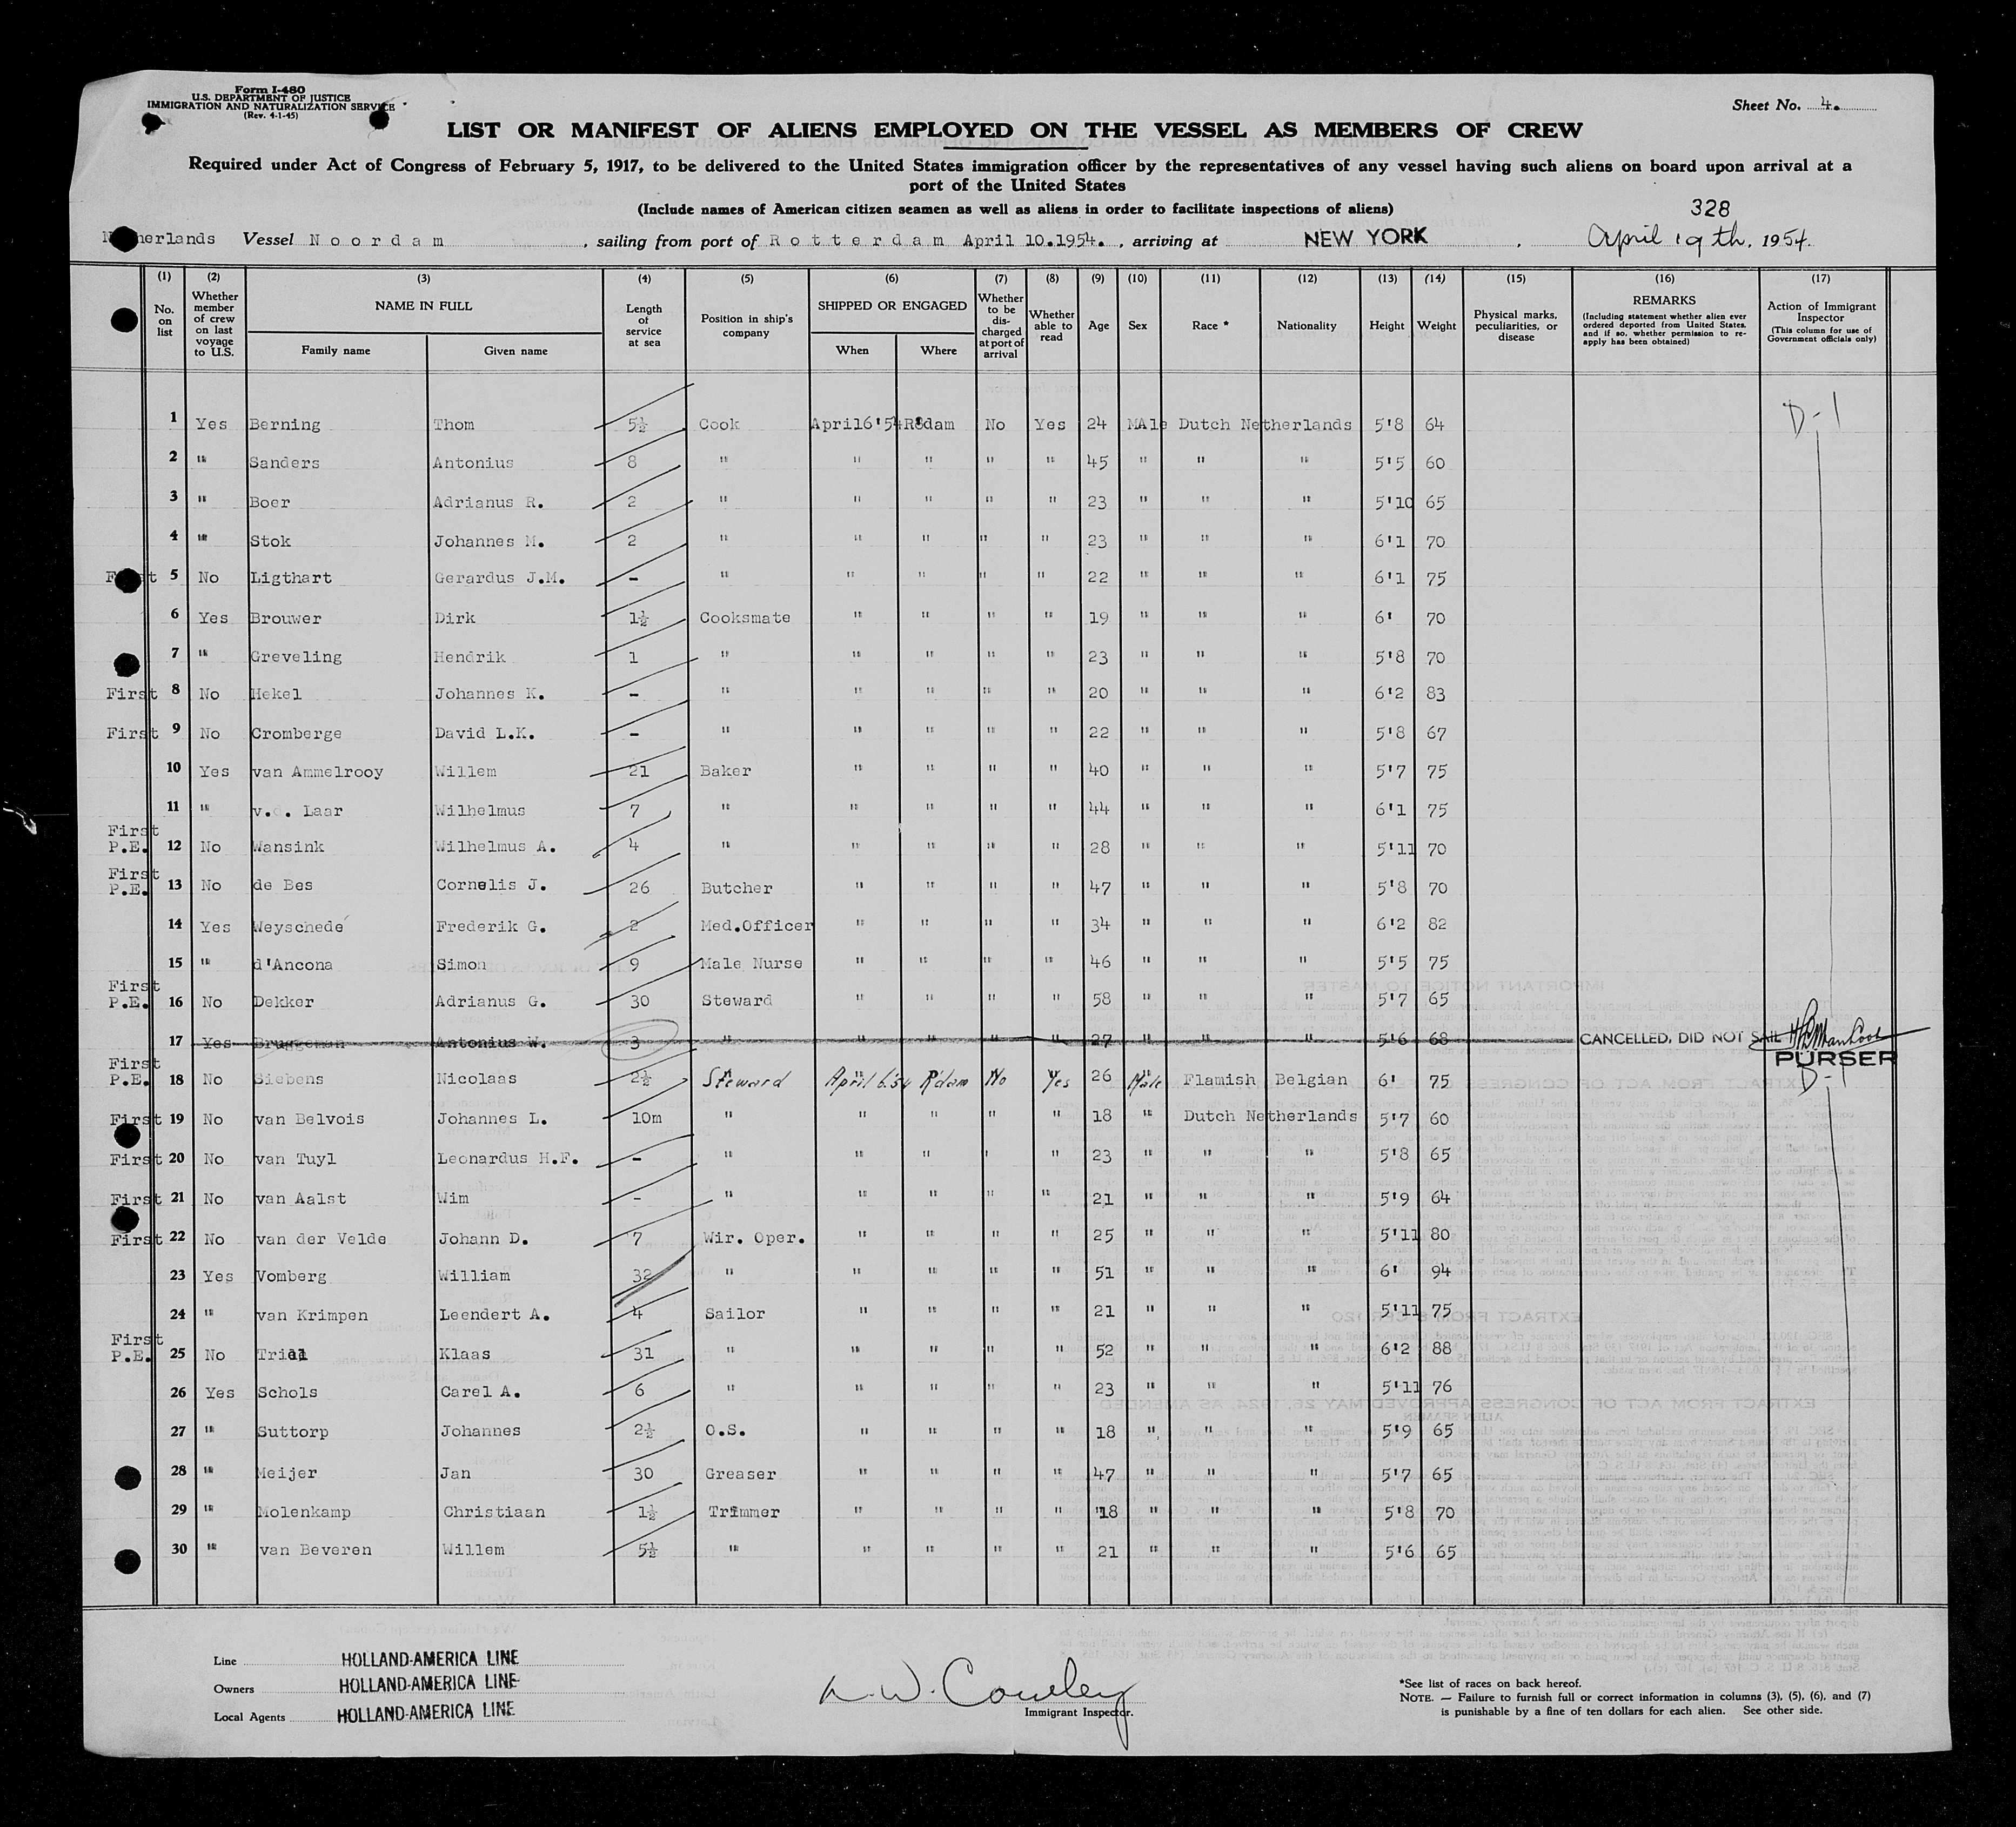 Form I-480
U.S. DEPARTMENT OF JUSTICE
IMMIGRATION AND NATURALIZATION SERVICE
(Rev. 4-1-45)
Sheet No. 4.
LIST OR MANIFEST OF ALIENS EMPLOYED ON THE VESSEL AS MEMBERS OF CREW
Required under Act of Congress of February 5, 1917, to be delivered to the United States immigration officer by the representatives of any vessel having such aliens on board upon arrival at a
port of the United States
(Include names of American citizen seamen as well as aliens in order to facilitate inspections of aliens)
328
Netherlands Vessel Noordam, sailing from port of Rotterdam April 10.1954., arriving at NEW YORK, April 19th, 1954.
(1) (2) (3) (4) (5) (6) (7) (8) (9) (10) (11) (12) (13) (14) (15) (16) (17)
No. on list
Whether member of crew on last voyage to U.S.
NAME IN FULL
Family name Given name
Length of service at sea
Position in ship's company
SHIPPED OR ENGAGED
When Where
Whether to be discharged at port of arrival
Whether able to read
Age Sex Race * Nationality Height Weight
Physical marks, peculiarities, or disease
REMARKS
(Including statement whether alien ever ordered deported from United States, and if so, whether permission to re-apply has been obtained)
Action of Immigrant Inspector
(This column for use of Government officials only)
1 Yes Berning Thom 5½ Cook April6'54 R'dam No Yes 24 MAle Dutch Netherlands 5'8 64 D-1
2 " Sanders Antonius 8 " " " " " 45 " " " 5'5 60
3 " Boer Adrianus R. 2 " " " " " 23 " " " 5'10 65
4 " Stok Johannes M. 2 " " " " " 23 " " " 6'1 70
First 5 No Ligthart Gerardus J.M. - " " " " " 22 " " " 6'1 75
6 Yes Brouwer Dirk 1½ Cooksmate " " " " 19 " " " 6' 70
7 " Greveling Hendrik 1 " " " " " 23 " " " 5'8 70
First 8 No Hekel Johannes K. - " " " " " 20 " " " 6'2 83
First 9 No Cromberge David L.K. - " " " " " 22 " " " 5'8 67
10 Yes van Ammelrooy Willem 21 Baker " " " " 40 " " " 5'7 75
11 " v.d. Laar Wilhelmus 7 " " " " " 44 " " " 6'1 75
First P.E. 12 No Wansink Wilhelmus A. 4 " " " " " 28 " " " 5'11 70
First P.E. 13 No de Bes Cornelis J. 26 Butcher " " " " 47 " " " 5'8 70
14 Yes Weyschedé Frederik G. 2 Med.Officer " " " " 34 " " " 6'2 82
15 " d'Ancona Simon 9 Male Nurse " " " " 46 " " " 5'5 75
First P.E. 16 No Dekker Adrianus G. 30 Steward " " " " 58 " " " 5'7 65
17 Yes Bruggeman Antonius W. 3 " " " " " 27 " " " 5'6 68 CANCELLED, DID NOT SAIL
PURSER
First P.E. 18 No Siebens Nicolaas 2½ Steward April 6.'54 R'dam No Yes 26 Male Flamish Belgian 6' 75 D-1
First 19 No van Belvois Johannes L. 10m " " " " " 18 " Dutch Netherlands 5'7 60
First 20 No van Tuyl Leonardus H.F. - " " " " " 23 " " " 5'8 65
First 21 No van Aalst Wim - " " " " " 21 " " " 5'9 64
First 22 No van der Velde Johann D. 7 Wir. Oper. " " " " 25 " " " 5'11 80
23 Yes Vomberg William 32 " " " " " 51 " " " 6' 94
24 " van Krimpen Leendert A. 4 Sailor " " " " 21 " " " 5'11 75
First P.E. 25 No Klaas 31 " " " " " 52 " " " 6'2 88
26 Yes Schols Carel A. 6 " " " " " 23 " " " 5'11 76
27 " Suttorp Johannes 2½ O.S. " " " " 18 " " " 5'9 65
28 " Meijer Jan 30 Greaser " " " " 47 " " " 5'7 65
29 " Molenkamp Christiaan 1½ Trimmer " " " " 18 " " " 5'8 70
30 " van Beveren Willem 5½ " " " " " 21 " " " 5'6 65
Line HOLLAND-AMERICA LINE
Owners HOLLAND-AMERICA LINE
Local Agents HOLLAND-AMERICA LINE
Immigrant Inspector.
*See list of races on back hereof.
NOTE. — Failure to furnish full or correct information in columns (3), (5), (6), and (7)
is punishable by a fine of ten dollars for each alien. See other side.